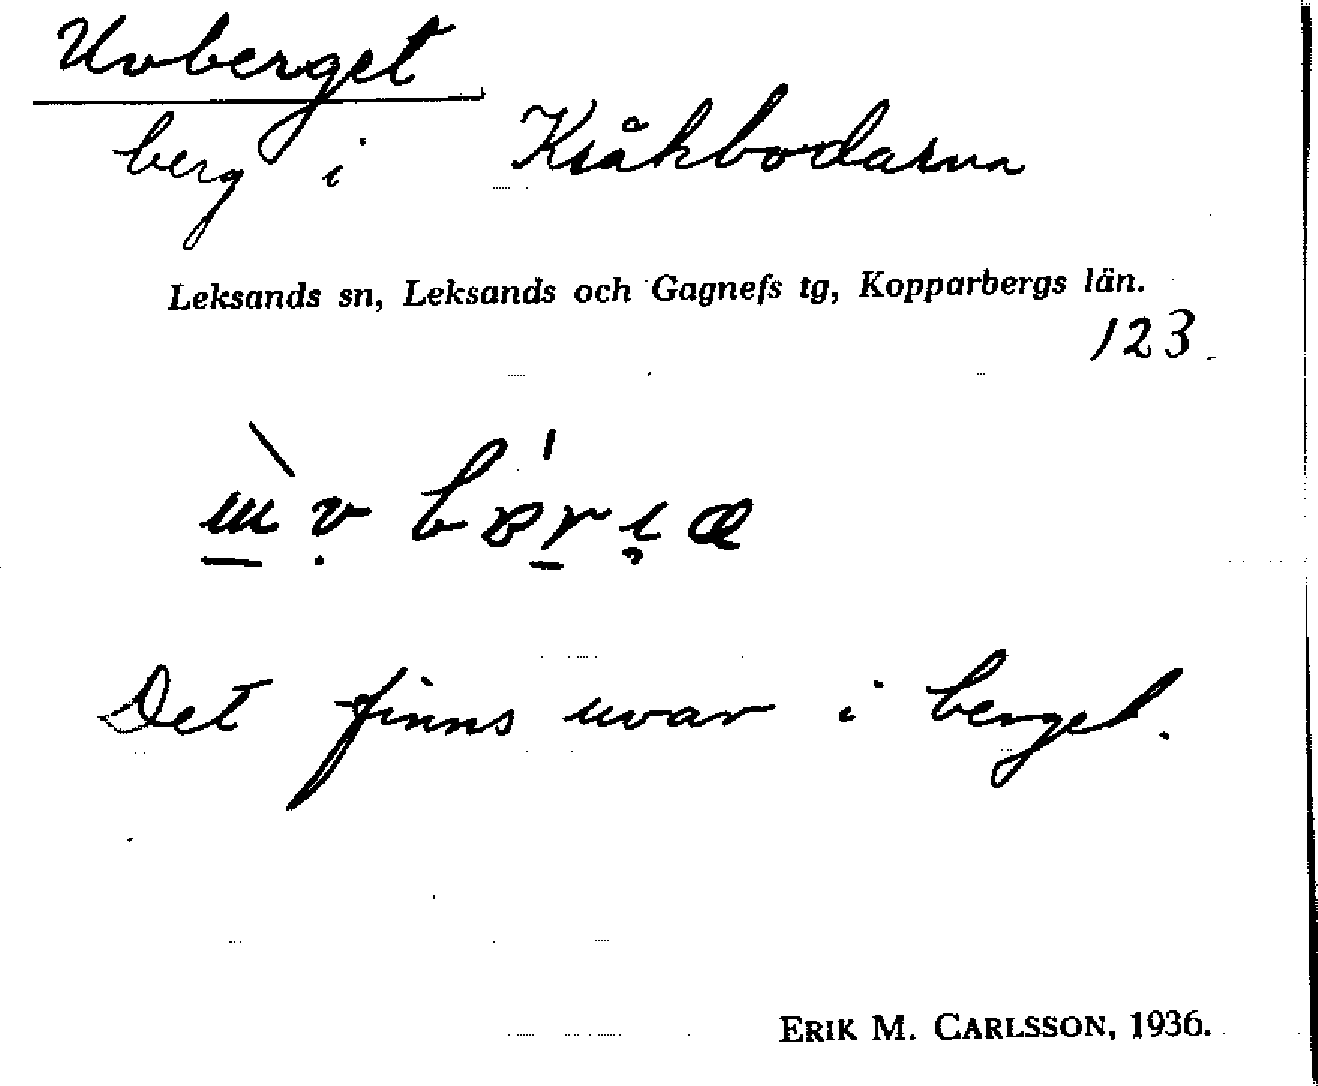 Uvberget
berg i Kråkbodarna
Leksands sn, Leksands och Gagnefs tg, Kopparbergs län.
123
Det finns uvar i berget.
ERIK M. CARLSSON, 1936.